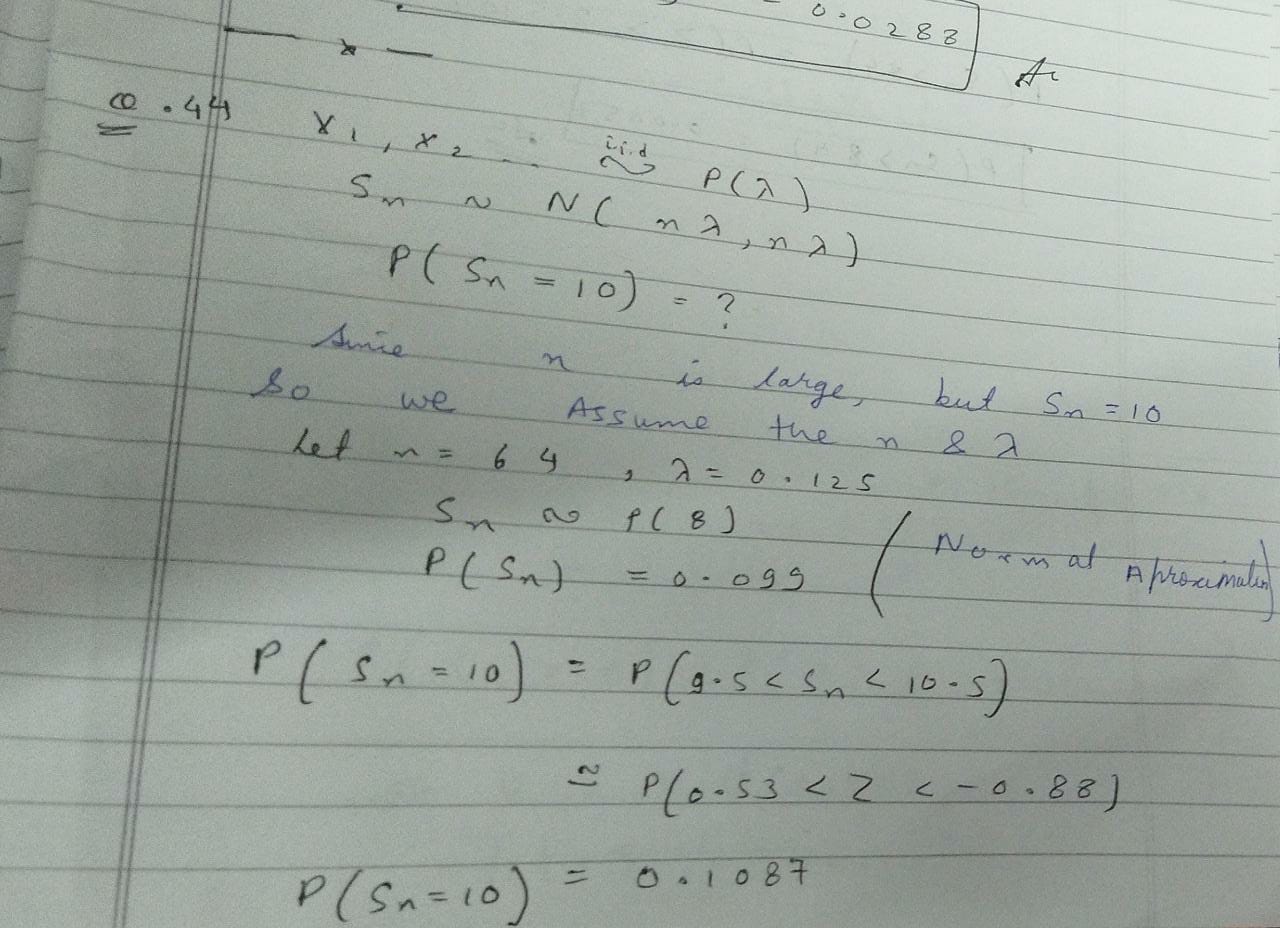 0.0288
Q.44 X1, X2 ... i.i.d ~ P(λ)
Sn ~ N(nλ, nλ)
P(Sn = 10) = ?
Since n is large, but Sn = 10
So we Assume the n & λ
Let n = 64, λ = 0.125
Sn ~ P(8)
P(Sn) = 0.099 (Normal Aproximation)
P(Sn = 10) = P(9.5 < Sn < 10.5)
≃ P(0.53 < Z < -0.88)
P(Sn = 10) = 0.1087